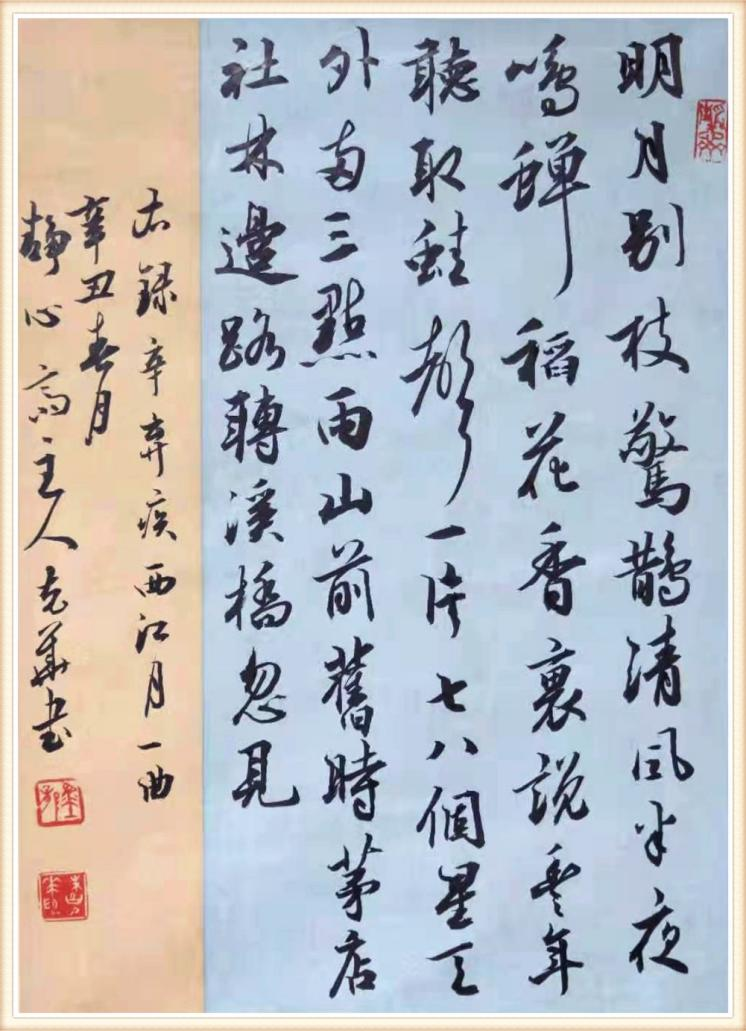 明月別枝驚鵲清風半夜
鳴蟬稻花香裏說豐年
聽取蛙聲一片七八個星天
外兩三點雨山前舊時茅店
社林邊路轉溪橋忽見
右錄辛棄疾西江月一曲
辛丑春月
靜心齋主人克華書